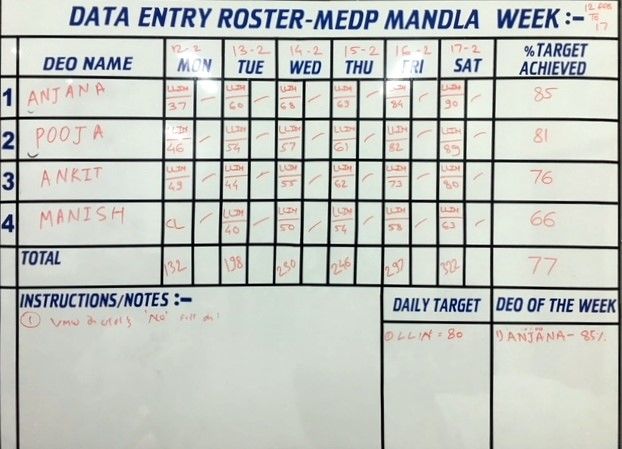 DATA ENTRY ROSTER-MEDP MANDLA WEEK:- 12 FEB TO 17
DEO NAME 12-2 MON 13-2 TUE 14-2 WED 15-2 THU 16-2 FRI 17-2 SAT % TARGET ACHIEVED
1 ANJANA LLIN 37 - LLIN 60 - LLIN 68 - LLIN 69 - LLIN 84 - LLIN 90 - 85
2 POOJA LLIN 46 - LLIN 54 - LLIN 57 - LLIN 61 - LLIN 82 - LLIN 89 - 81
3 ANKIT LLIN 49 - LLIN 44 - LLIN 55 - LLIN 62 - LLIN 73 - LLIN 80 - 76
4 MANISH CL - LLIN 40 - LLIN 50 - LLIN 54 - LLIN 58 - LLIN 63 - 66
TOTAL 132 198 230 246 297 322 77
INSTRUCTIONS/NOTES :-
① VMW 'No'
DAILY TARGET
① LLIN = 80
DEO OF THE WEEK
1) ANJANA - 85%